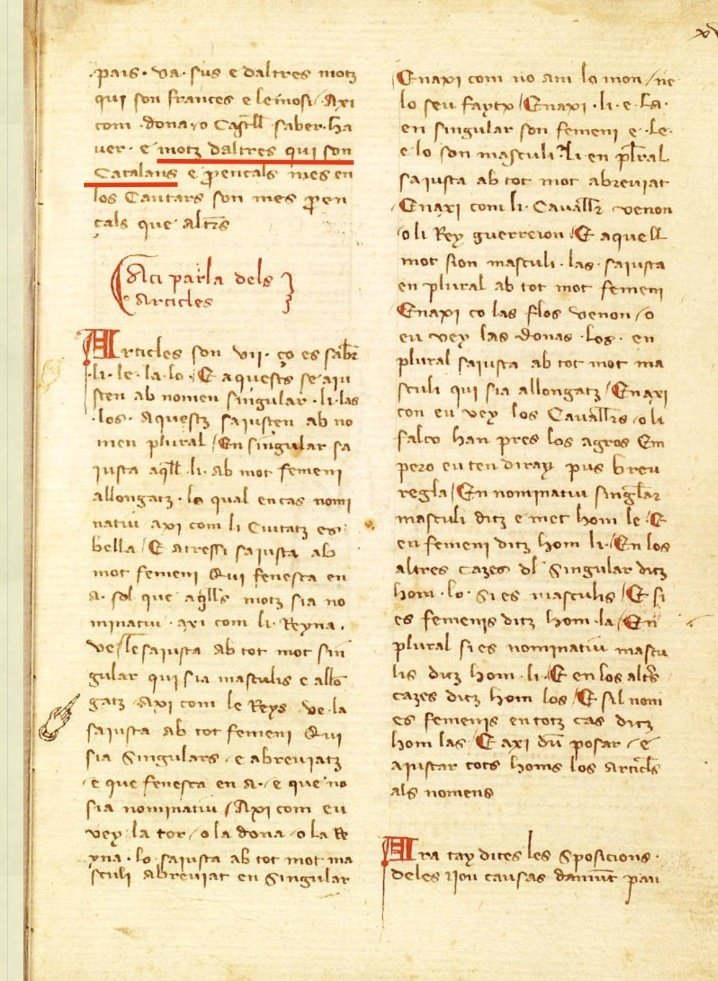 pais · va · sus e daltres motz
qui son frances e lemosi · Axi
com · dona · o Castell saber · ha
uer · e motz daltres qui son
Catalans e proencals mes en
los Cantars son mes proen
cals que altrs
Aci parla dels
articles
Articles son vii · ço es saber
· li · le · la · lo · E aquests se aiu
sten ab nomen singular · li · las
· los · Aquestz saiusten ab no
men plural / En singular sa
iusta aqll · li · Ab mot femeni
allongatz · lo qual en cas nomi
natiu axi com li Ciutatz es
bella / E atressi saiusta ab
mot femeni Qui fenesca en
a · sol que aqlls motz sia no
minatiu · axi com li · Reyna ·
ve / le saiusta Ab tot mot sin
gular qui sia masculis e allon
gatz Axi com le Reys ve · la
saiusta ab tot femeni Qui
sia Singulars · e abreuiatz
· e que fenesca en a · e que no
sia nominatiu / Axi com eu
vey · la tor · o la dona · o la Re
yna · lo · saiusta ab tot mot ma
sculi abreuiat en singular
Enaxi com no am lo mon / ne
lo seu faytz / Enaxi · li · e · la ·
en singular son femeni e · le ·
e · lo son masculi · li en plral
saiusta ab tot mot abreuiat
Enaxi com li · Cauallr venon
o li Rey guerreion / E aquell
mot sion masculi · las · saiusta
en plural ab tot mot femeni
Enaxi co las flos venon / o
eu vey las donas · Los · en
plural saiusta ab tot mot ma
sculi qui sia allongatz / Enaxi
con eu vey los Cauallrs · o li
falco han pres los agros Em
pero eu ten diray pus breu
regla / En nominatiu singlar
masculi ditz e met hom le · E
eu femeni ditz hom li · En los
altres cazes dl Singular ditz
hom · lo · Si es masculis / E si
es femenis ditz hom · la / En
plural si es nominatiu mascu
lis ditz hom · li · E en los altrs
cazes ditz hom los / E sil nom
es femenis en totz cas ditz
hom las · E axi du posar · e
aiustar totz homs los articls
als nomens
Ara tay dites les Sposicions ·
deles nou causas damunt pau